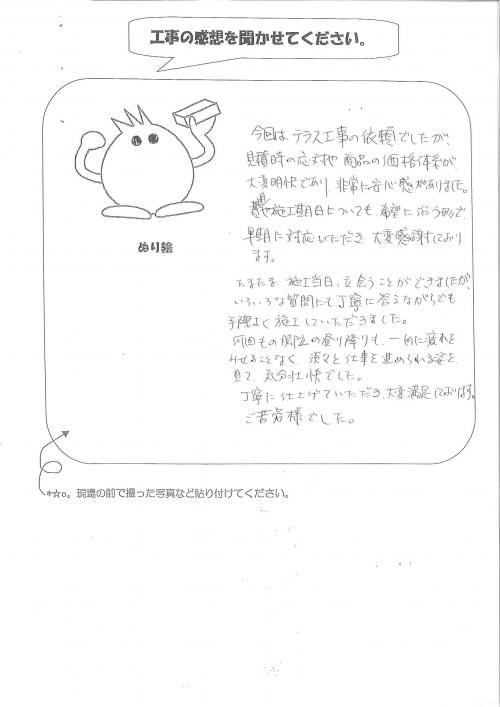 工事の感想を聞かせてください。
今回は、テラス工事の依頼でしたが、
見積時の応対や商品の価格体系が
大変明快であり、非常に安心感がありました。
施工期日についても、希望に沿う形で、
早期に対応いただき、大変感謝しており
ます。
ぬり絵
たまたま、施工当日、立会うことができましたが、
いろいろな質問にも丁寧に答えながらでも
手際よく施工していただきました。
何回もの脚立の登り降りも、一向に疲れを
みせることなく、淡々と仕事を進められる姿を、
見て、気分壮快でした。
丁寧に仕上げていただき、大変満足しております。
ご苦労様でした。
*☆o。現場の前で撮った写真など貼り付けてください。